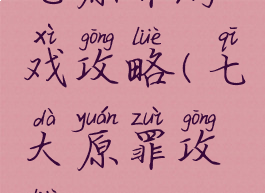 xì gōng lüè qī
戏攻略(七
dà yuán zuì gōng
大原罪攻